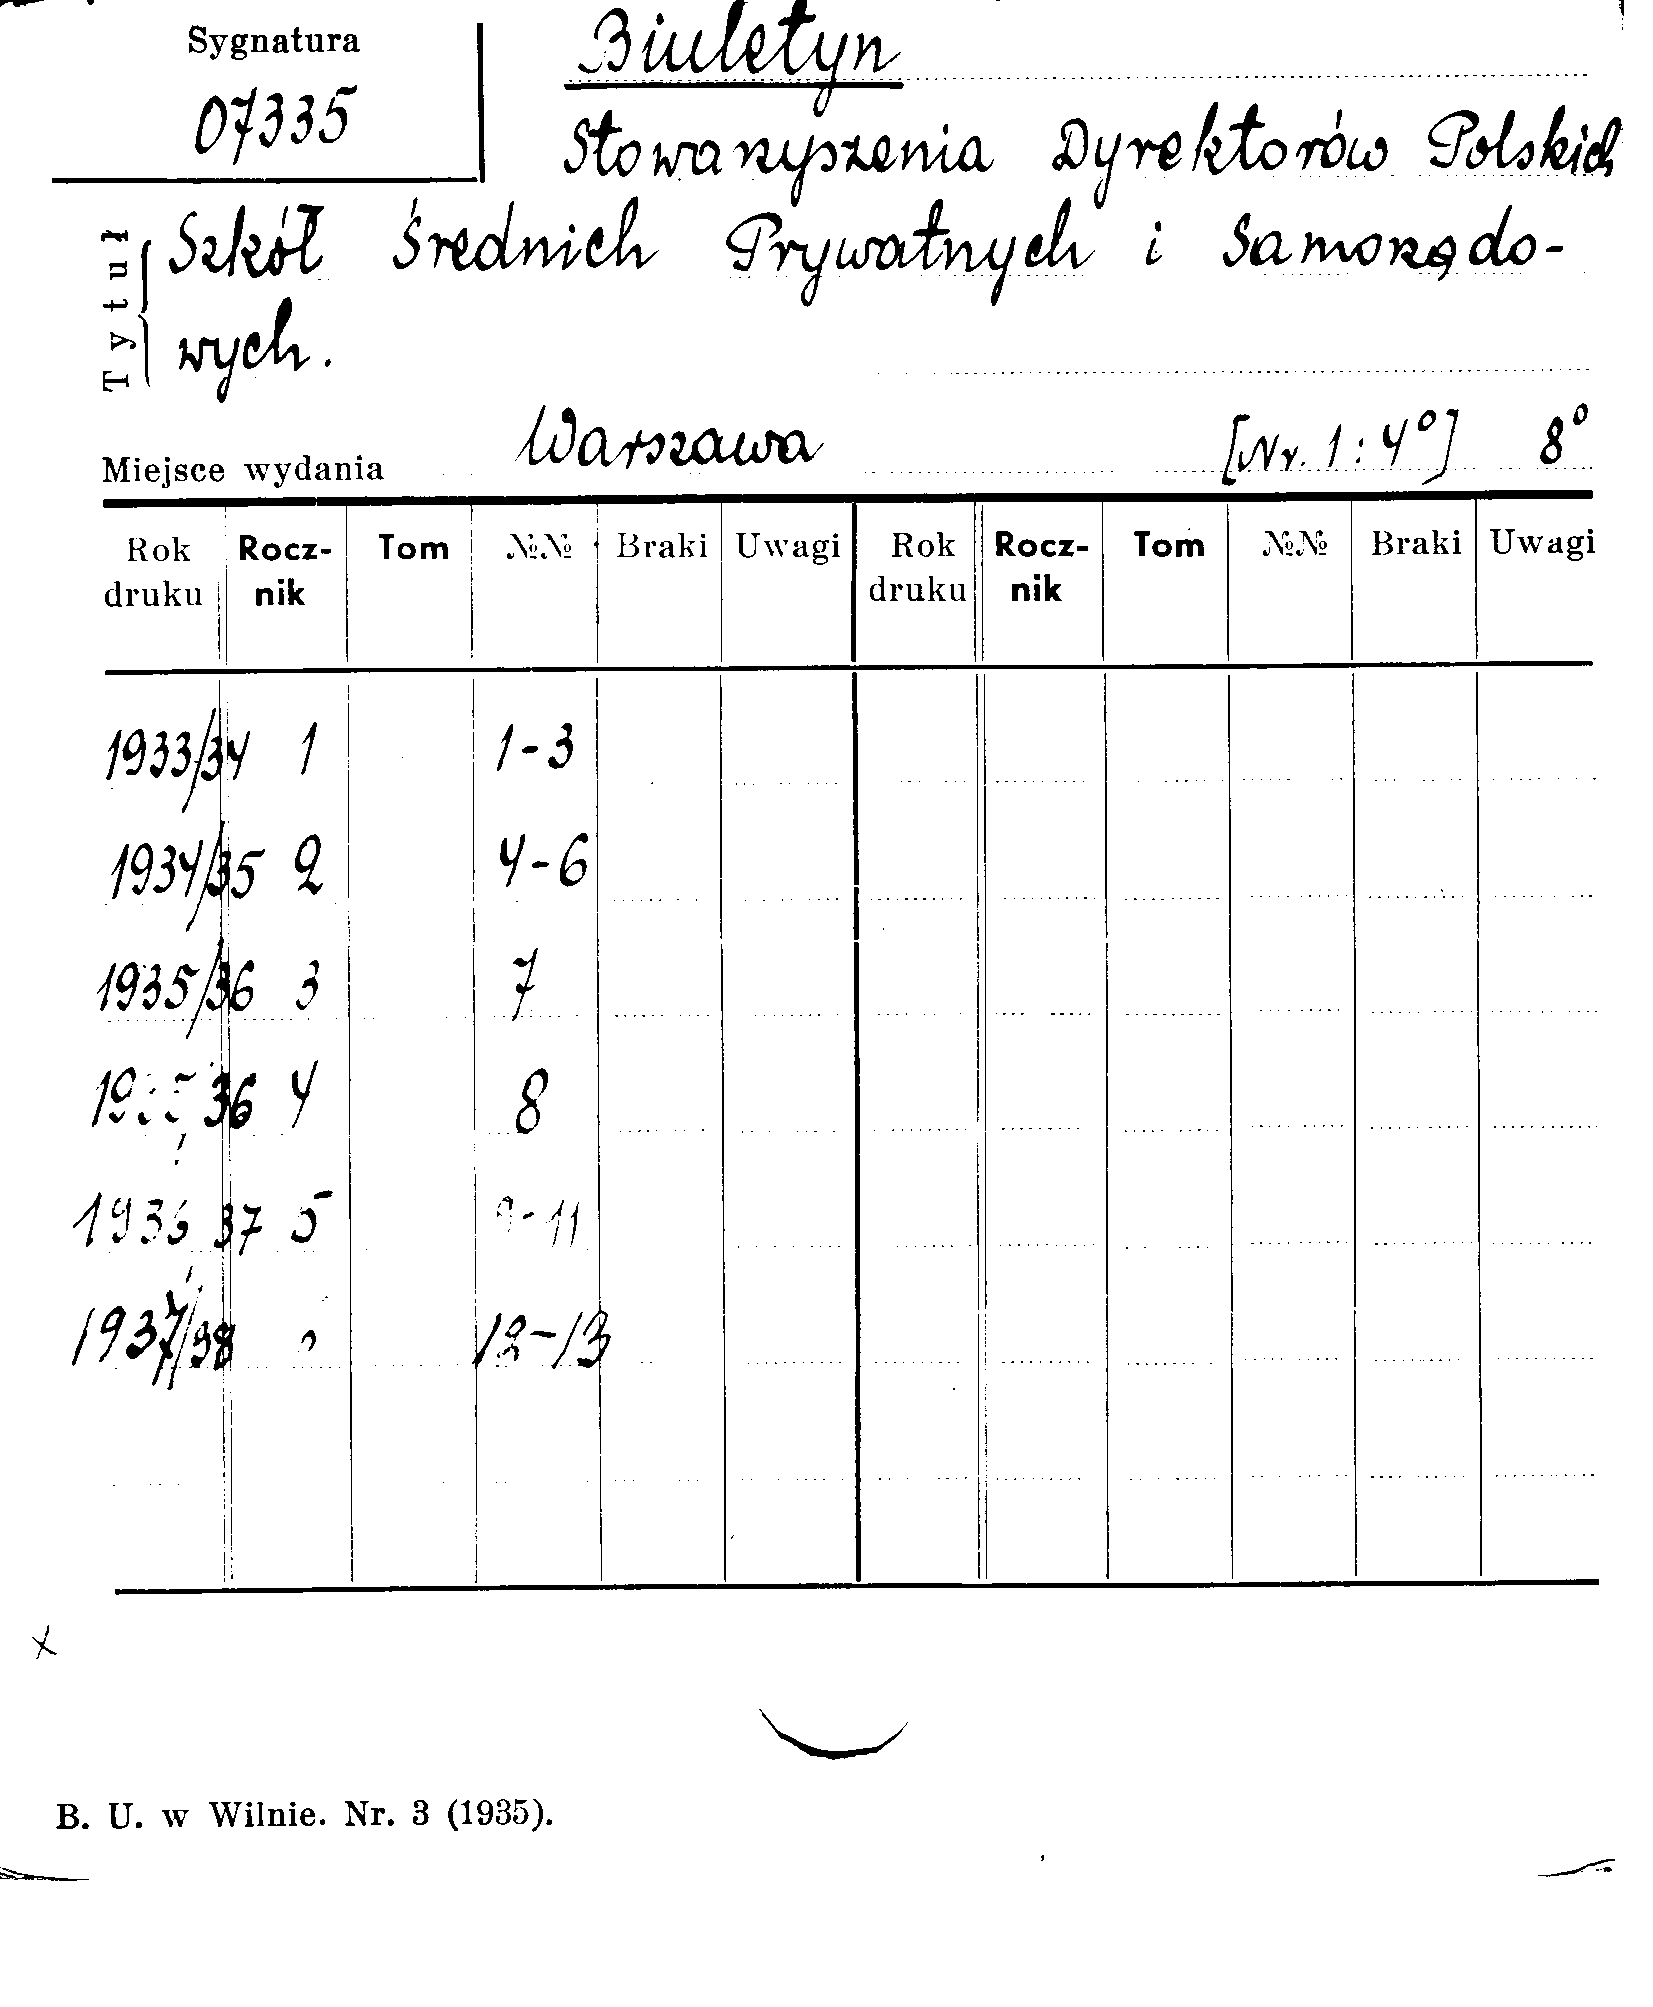 Sygnatura
07335
Biuletyn
Stowarzyszenia Dyrektorów Polskich
Tytuł
Szkół Średnich Prywatnych i Samorządo-
wych.
Miejsce wydania Warszawa [Nr. 1 : 4°] 8°
Rok druku Rocz-nik Tom №№ Braki Uwagi Rok druku Rocz-nik Tom №№ Braki Uwagi
1933/34 1 1-3
1934/35 2 4-6
1935/36 3 7
1935/36 4 8
1936/37 5 9-11
1937/38 12-13
x
B. U. w Wilnie. Nr. 3 (1935).